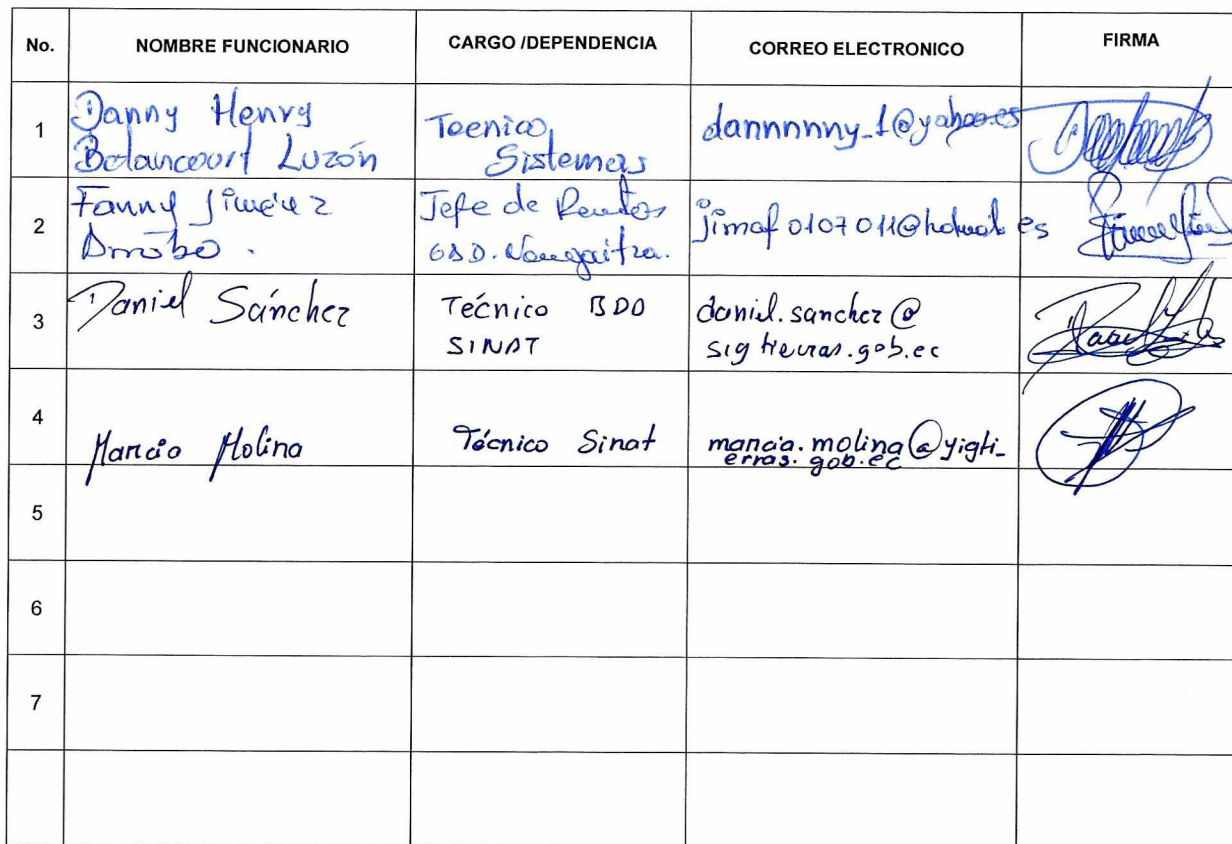 No. NOMBRE FUNCIONARIO CARGO /DEPENDENCIA CORREO ELECTRONICO FIRMA
1
Danny Henry
Betancourt Luzón
Tecnico
Sistemas
dannnnny_1@yahoo.es
2
Fanny Jiménez
Arrobo .
Jefe de Rentas
GAD. Nangaritza.
jimaf0107011@hotmail.es
3
Daniel Sánchez
Técnico BDD
SINAT
daniel.sanchez@
sigtierras.gob.ec
4
Marcia Molina
Técnico Sinat
marcia.molina@sigti_
erras.gob.ec
5
6
7